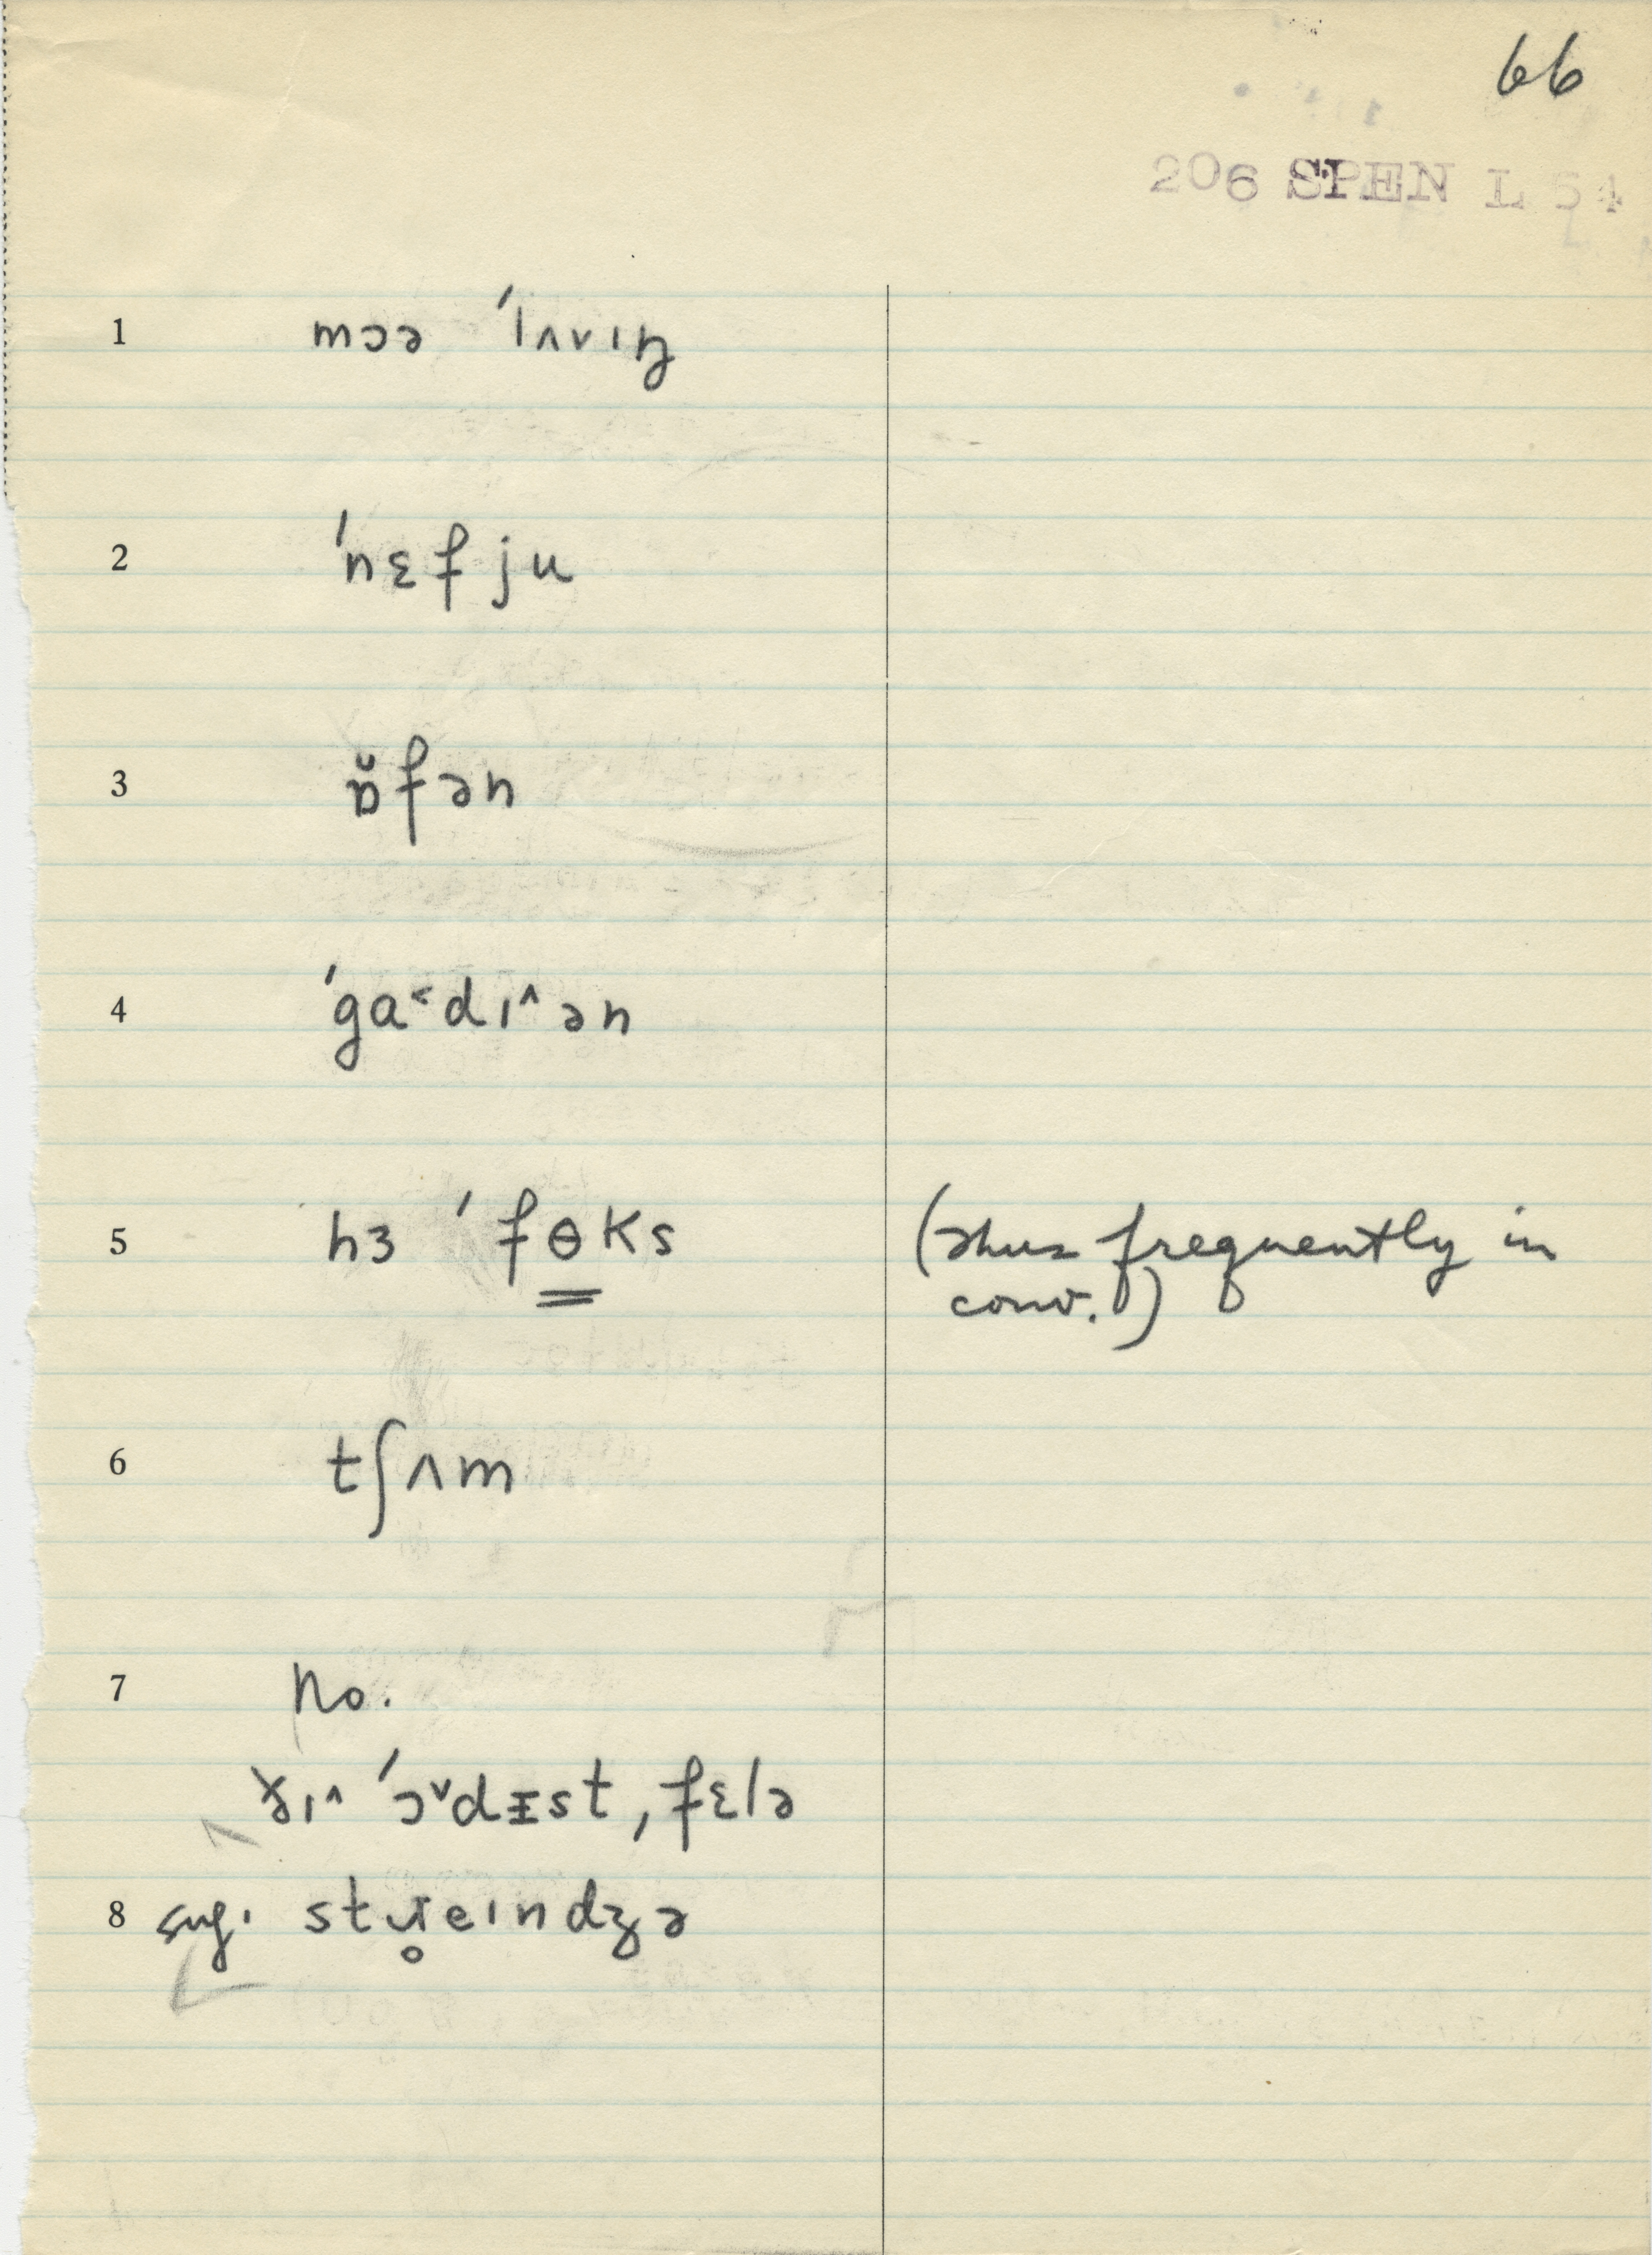 66
206 SPEN L 54
1 mɔə ˈlʌvɪŋ
2 ˈnɛfju
3 ɒ̆fən
4 ˈga˂dɪ˄ən
5 hɜ ˈfɵks (thus frequently in
conv.)
6 tʃʌm
7 no.
ðɪ˄ ˈɔ˅dɪst, fɛlə
8 sug. stɹ̥eɪndʒə